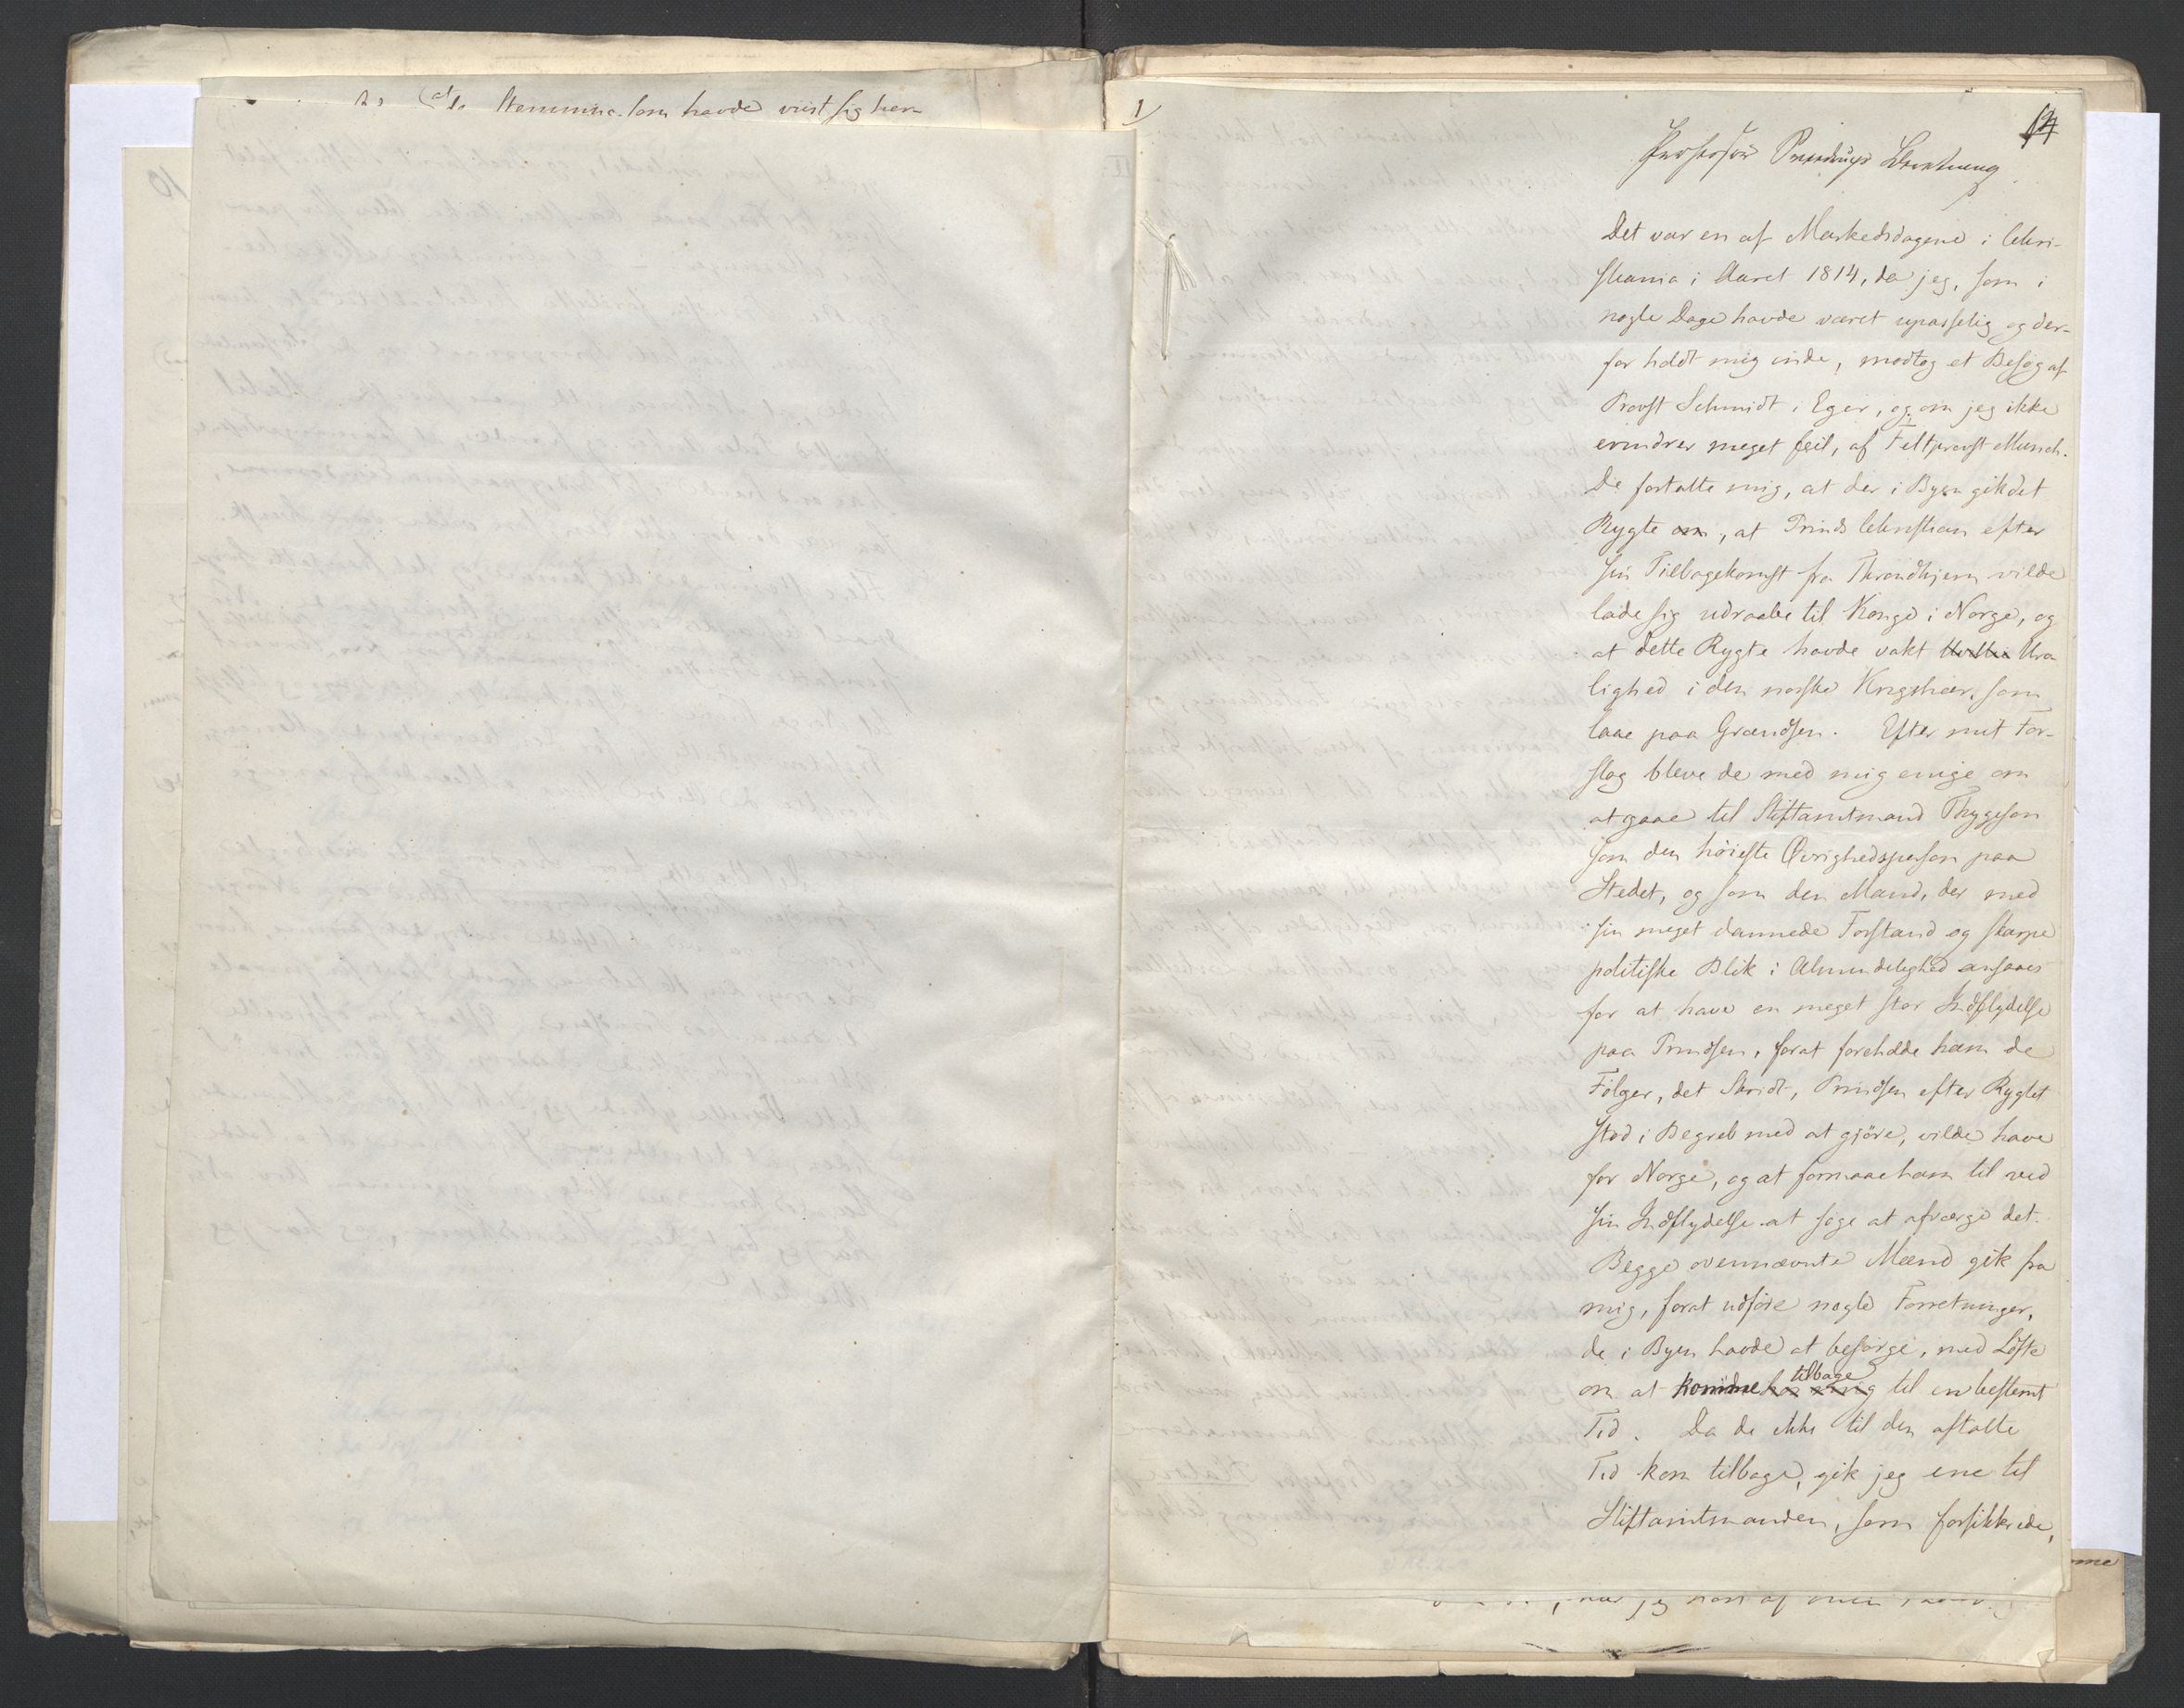 Stemning som havde viist sig hera
1
Professor Beretning
Det var en af Markedsdagene i Chri-
stiania i Aaret 1814, da jeg, som i
nogle Dage havde været upasselig og der-
for holdt mig inde, modtog et Besøg af
Provst Schmidt i Eger, og om jeg ikke
erindrer meget feil, af Feltprovst Munch.
De fortalte mig, at der i Byen gik det
Rygte om, at Prinds Christian efter
sin Tilbagekomst fra Throndhjem vilde
lade sig udraabe til Konge i Norge, og
at dette Rygte havde vakt Uro
lighed i den norske Krigshær, som
laae paa Grændsen. Efter mit For-
slag bleve de med mig enige om
at gaae til Stiftamtmand Thygeson
som den høieste Øvrighedsperson paa
Stedet, og som den Mand, der med
sin meget dannede Forstand og skarpe
politiske Blik i Almindelighed ansaaes
for at have en meget stor Indflydelse
paa Prindsen, forat foreholde ham de
Følger, det Skridt, Prindsen efter Rygtet
stod i Begreb med at gjöre, vilde have
for Norge, og at formaae ham til ved
sin Indflydelse at søge at afværge det.
Begge ovennævnte Mænd gik fra
mig, forat udføre nogle Forretninger,
de i Byen havde at besörge, med Löfte
om at komme hos mig tilbage til en bestemt
Tid. Da de ikke til den aftalte
Tid kom tilbage, gik jeg ene til
Stiftamtmanden, som forsikkrede,